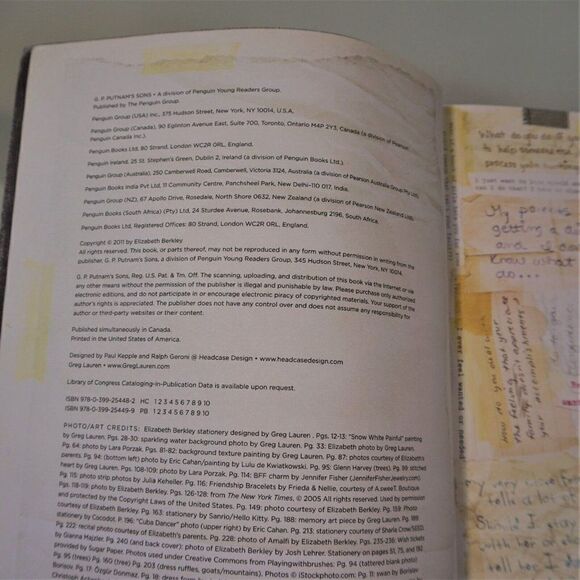 G. P. PUTNAM'S SONS • A division of Penguin Young Readers Group.
Published by The Penguin Group.
Penguin Group (USA) Inc., 375 Hudson Street, New York, NY 10014, U.S.A.
Penguin Group (Canada), 90 Eglinton Avenue East, Suite 700, Toronto, Ontario M4P 2Y3, Canada (a division of Pearson
Penguin Canada Inc.).
Penguin Books Ltd, 80 Strand, London WC2R 0RL, England.
Penguin Ireland, 25 St. Stephen's Green, Dublin 2, Ireland (a division of Penguin Books Ltd.).
Penguin Group (Australia), 250 Camberwell Road, Camberwell, Victoria 3124, Australia (a division of Pearson Australia Group Pty Ltd).
Penguin Books India Pvt Ltd, 11 Community Centre, Panchsheel Park, New Delhi-110 017, India.
Penguin Group (NZ), 67 Apollo Drive, Rosedale, North Shore 0632, New Zealand (a division of Pearson New Zealand Ltd).
Penguin Books (South Africa) (Pty) Ltd, 24 Sturdee Avenue, Rosebank, Johannesburg 2196, South Africa.
Penguin Books Ltd, Registered Offices: 80 Strand, London WC2R 0RL, England.
Copyright © 2011 by Elizabeth Berkley
All rights reserved. This book, or parts thereof, may not be reproduced in any form without permission in writing from the
publisher, G. P. Putnam's Sons, a division of Penguin Young Readers Group, 345 Hudson Street, New York, NY 10014.
G. P. Putnam's Sons, Reg. U.S. Pat. & Tm. Off. The scanning, uploading, and distribution of this book via the Internet or via
any other means without the permission of the publisher is illegal and punishable by law. Please purchase only authorized
electronic editions, and do not participate in or encourage electronic piracy of copyrighted materials. Your support of the
author's rights is appreciated. The publisher does not have any control over and does not assume any responsibility for
author or third-party websites or their content.
Published simultaneously in Canada.
Printed in the United States of America.
Designed by Paul Kepple and Ralph Geroni @ Headcase Design • www.headcasedesign.com
Greg Lauren • www.GregLauren.com
Library of Congress Cataloging-in-Publication Data is available upon request.
ISBN 978-0-399-25448-2 HC 1 2 3 4 5 6 7 8 9 10
ISBN 978-0-399-25449-9 PB 1 2 3 4 5 6 7 8 9 10
PHOTO/ART CREDITS: Elizabeth Berkley stationery designed by Greg Lauren . Pgs. 12-13: "Snow White Painful" painting
by Greg Lauren. Pgs. 28-30: sparkling water background photo by Greg Lauren. Pg. 33: Elizabeth photo by Greg Lauren.
Pg. 64: photo by Lara Porzak. Pgs. 81-82: background texture painting by Greg Lauren. Pg. 87: photos courtesy of Elizabeth's
parents. Pg. 94: (bottom left) photo by Eric Cahan/painting by Lulu de Kwiatkowski. Pg. 95: Glenn Harvey (trees). Pg. 99: stitched
heart by Greg Lauren. Pgs. 108-109: photo by Lara Porzak. Pg. 114: BFF charm by Jennifer Fisher (JenniferFisherJewelry.com)
Pg. 115: photo strip photos by Julia Keheller. Pg. 116: Friendship Bracelets by Frieda & Nellie, courtesy of A.sweeT. Boutique
Pgs. 118-119: photo by Elizabeth Berkley. Pgs. 126-128: from The New York Times, © 2005 All rights reserved. Used by permission
and protected by the Copyright Laws of the United States. Pg. 149: photo courtesy of Elizabeth Berkley. Pg. 159: Photo
courtesy of Elizabeth Berkley. Pg. 163: stationery by Sanrio/Hello Kitty. Pg. 188: memory art piece by Greg Lauren. Pg. 189
stationery by Cocodot. P 196: "Cuba Dancer" photo (upper right) by Eric Cahan. Pg. 213: stationery courtesy of Sharla Crow SEED.
Pg. 222: recital photo courtesy of Elizabeth's parents. Pg. 228: photo of Amalfi by Elizabeth Berkley. Pg. 235-236: Wish tickets
by Gianna Majzler. Pg. 240 (and back cover): photo of Elizabeth Berkley by Josh Lehrer. Stationery on pages 51, 75, and 192
provided by Sugar Paper. Photos used under Creative Commons from Playingwithbrushes: Pg. 94 (tattered blank photo)
Pg. 95 (trees) Pg. 160 (tree) Pg. 203 (dress ruffles, goats/mountains). Photos © iStockphoto.com: Pg. 11: swan by Borislav
Borisov Pg. 17: Özgür Donmaz. Pg. 18: dress from
What do you do if
to help someone else
process
My parents
getting a
and I
Know what
do...
how do you outshine
the feeling that
your parents
your accomplishments?
ever feel wanted or needed
my
tells a lot of
Should I stay
with her or
tell her I